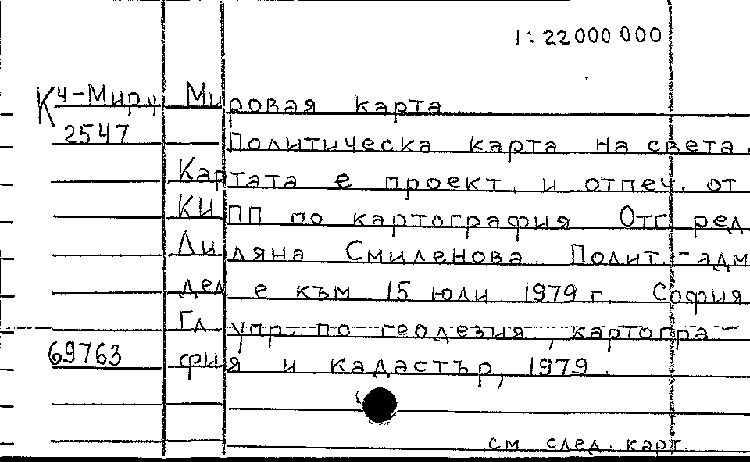 1:22000 000
Кч-Мир Мировая карта
2547 Политическа карта на света.
Картата е проект. и отпеч. от
КИПП по картография Отг ред
Лиляна Смиленова Полит.-адм
дел е към 15 юли 1979 г. София
Гл. упр. по геодезия, картогра-
69763 фия и кадастър, 1979.
см след. карт.